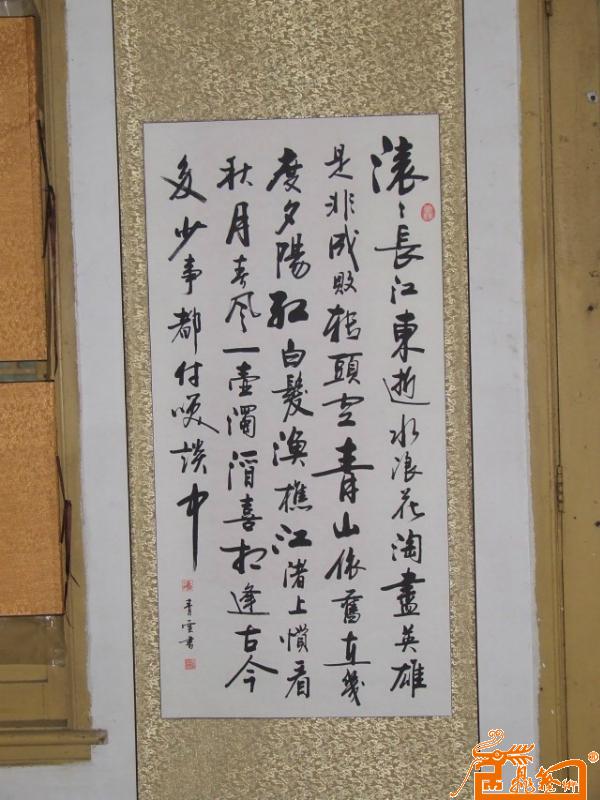 滚〻長江東逝水浪花淘盡英雄
是非成敗轉頭空青山依舊在幾
度夕陽紅白髮漁樵江渚上慣看
秋月春风一壺濁酒喜相逢古今
多少事都付笑談中
青雲書